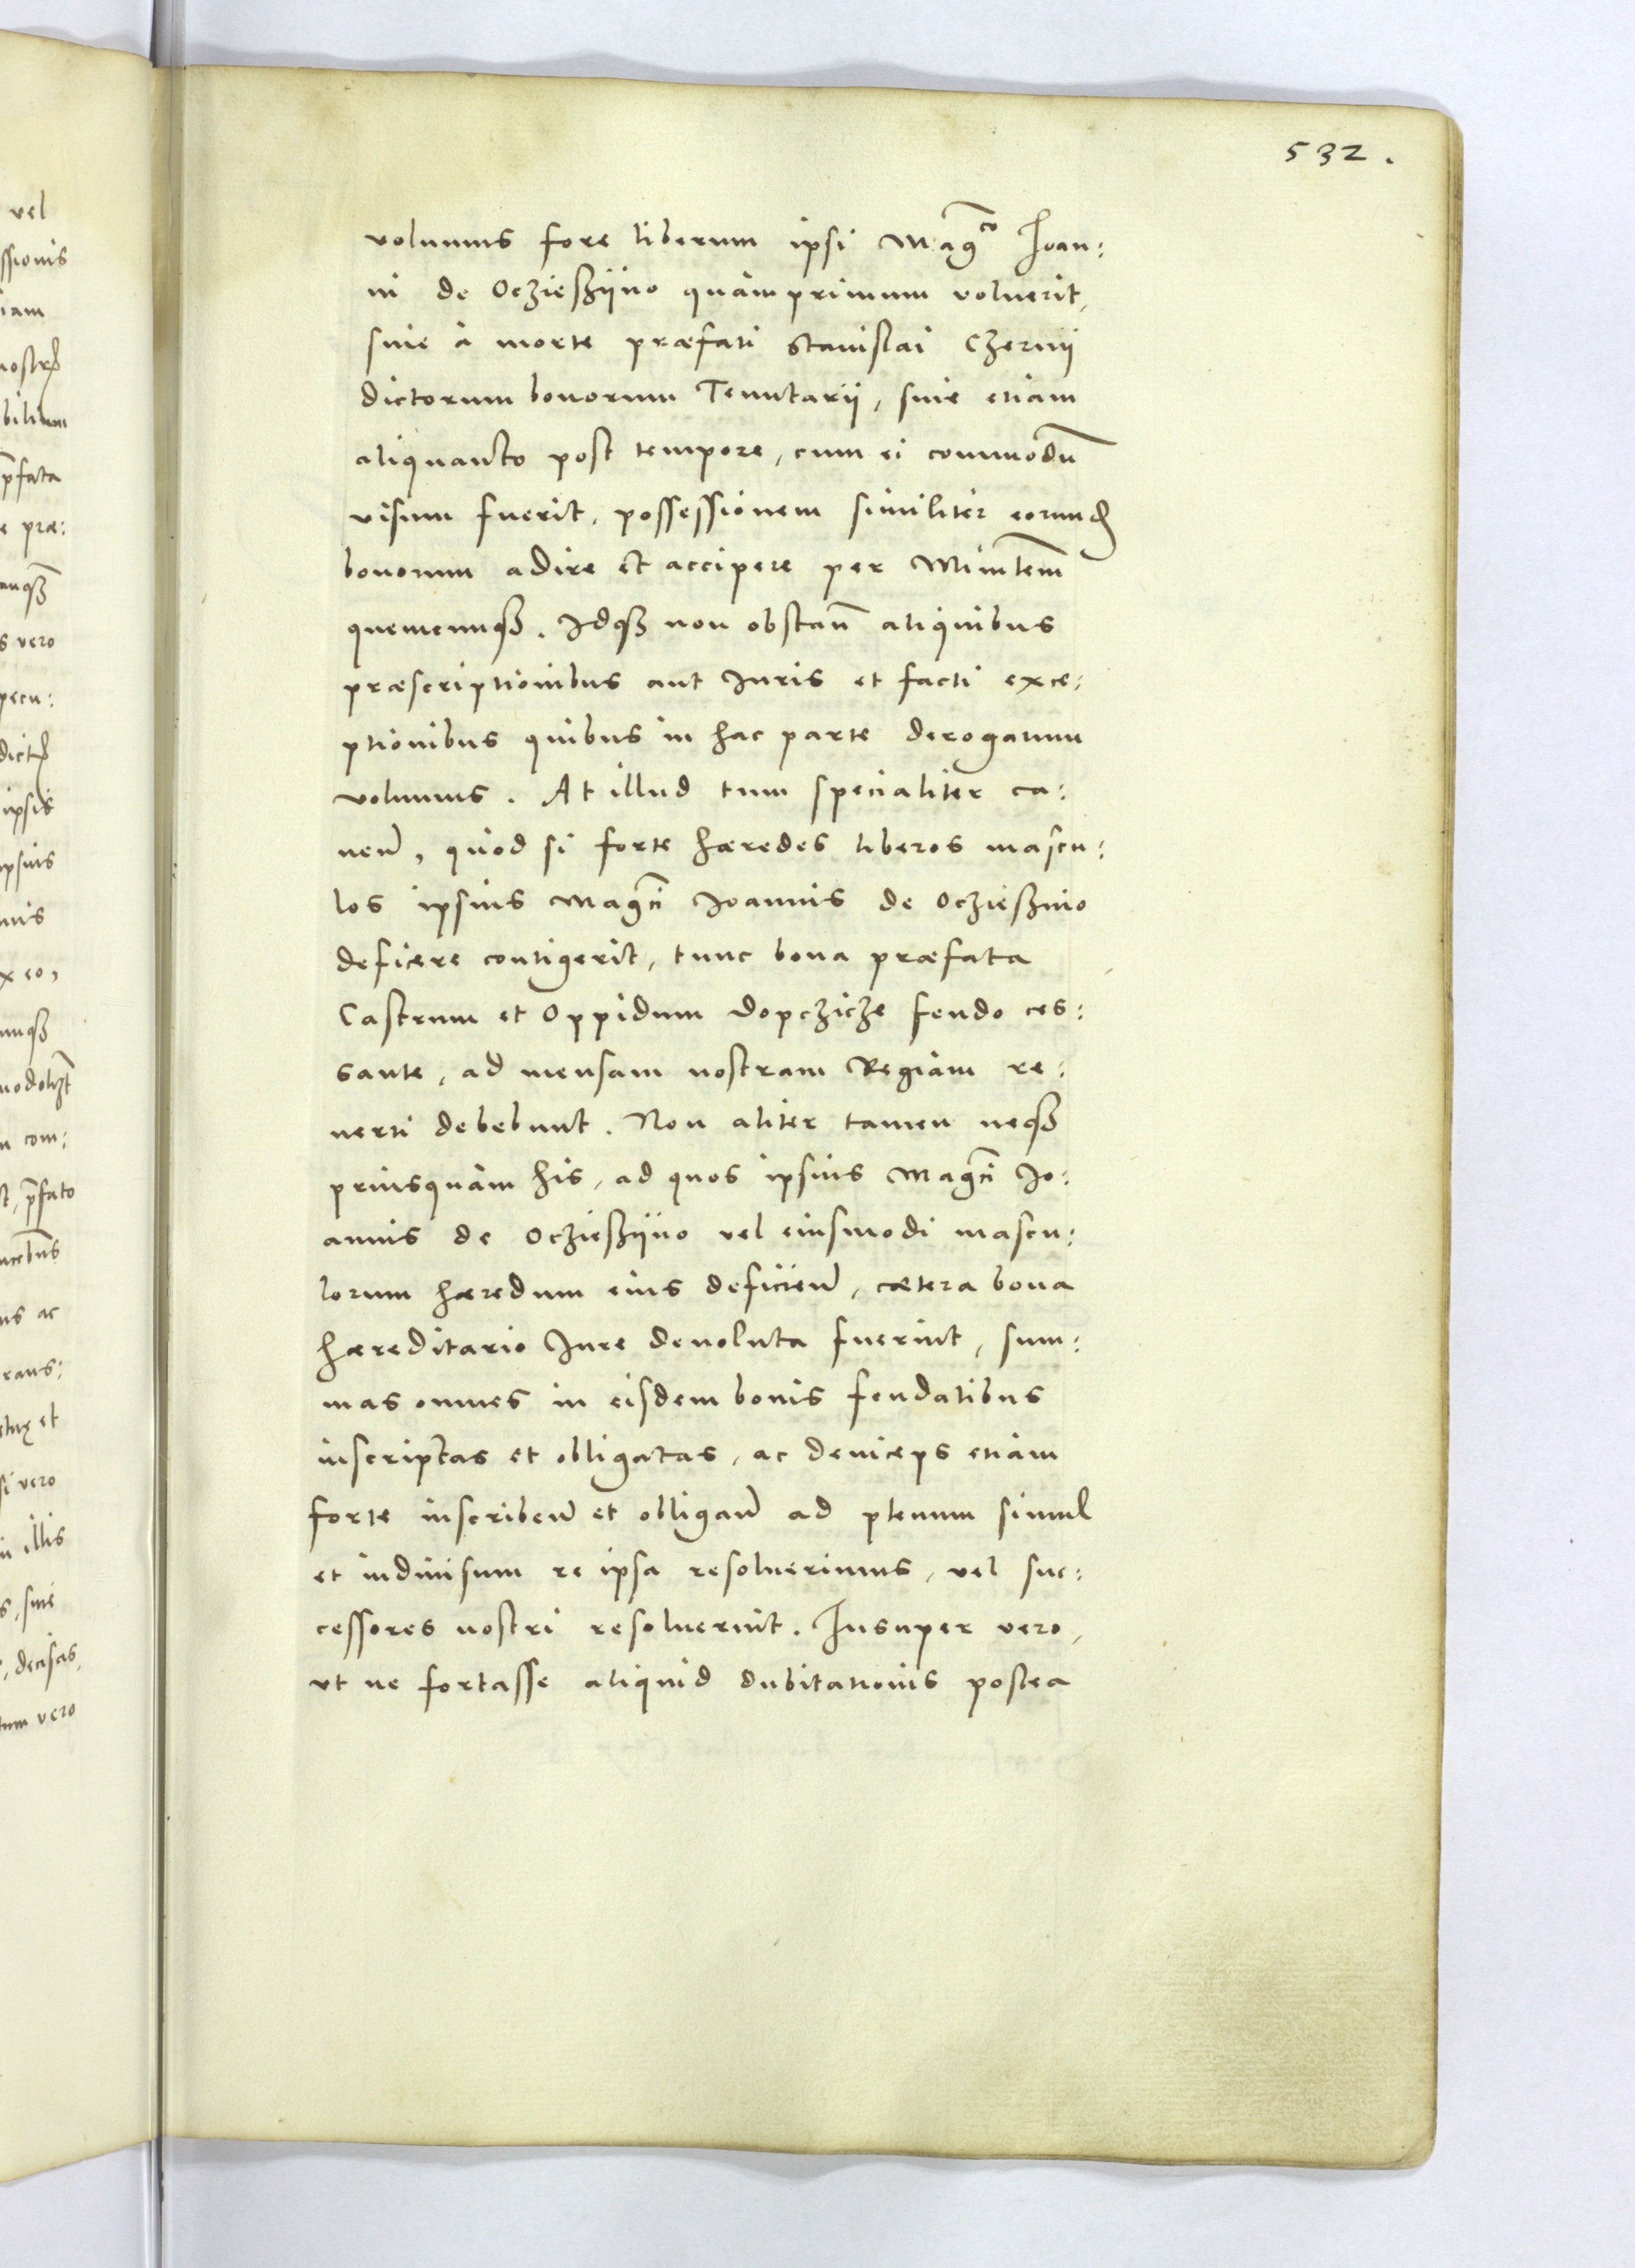 532.
volumus fore liberum ipsi Mag^co Ioan:
ni de Oczieszijno quàm primum voluerit,
siue à morte præfati Stanislai Czernij
dictorum bonorum Tenutarij, siue etiam
aliquanto post tempore, cum ei commodū
visum fuerit, possessionem similiter eorund
bonorum adire et accipere per Minrtem
quemcunq3. Idq3 non obstan̄ aliquibus
præscriptionibus aut Iuris et facti exce:
ptionibus quibus in hac parte derogatum
volumus. At illud tum specialiter ca:
uen̄, quòd si forte hæredes liberos mascu:
los ipsius Magci Ioannis de Oczieszino
deficere contigerit, tunc bona præfata
Castrum et Oppidum Dopczicze feudo ces:
sante, ad mensam nostram Regiam re:
uerti debebunt. Non aliter tamen neq3
priusquàm his, ad quos ipsius Magci Io:
annis de Ocziesziino vel eiusmodi mascu:
lorum hæredum eius deficien̄, cætera bona
hæreditario Iure deuoluta fuerint, sum:
mas omnes in eisdem bonis feudalibus
inscriptas et obligatas, ac deinceps etiam
forte inscriben̄ et obligan̄ ad plenum simul
et indiuisum re ipsa resoluerimus, vel suc:
cessores nostri resoluerint. Insuper vero,
vt ne fortasse aliquid dubitationis postea
vel
ssionis
iam
nostrȩ
bilium
p̄fata
e præ:
unq3
s vero
pecu:
ipsis
ipsius
nnis
x eo,
unq3
n com:
t, p̄fato
ns ac
rans:
si vero
in illis
s, siue
, decisas,
tum vero